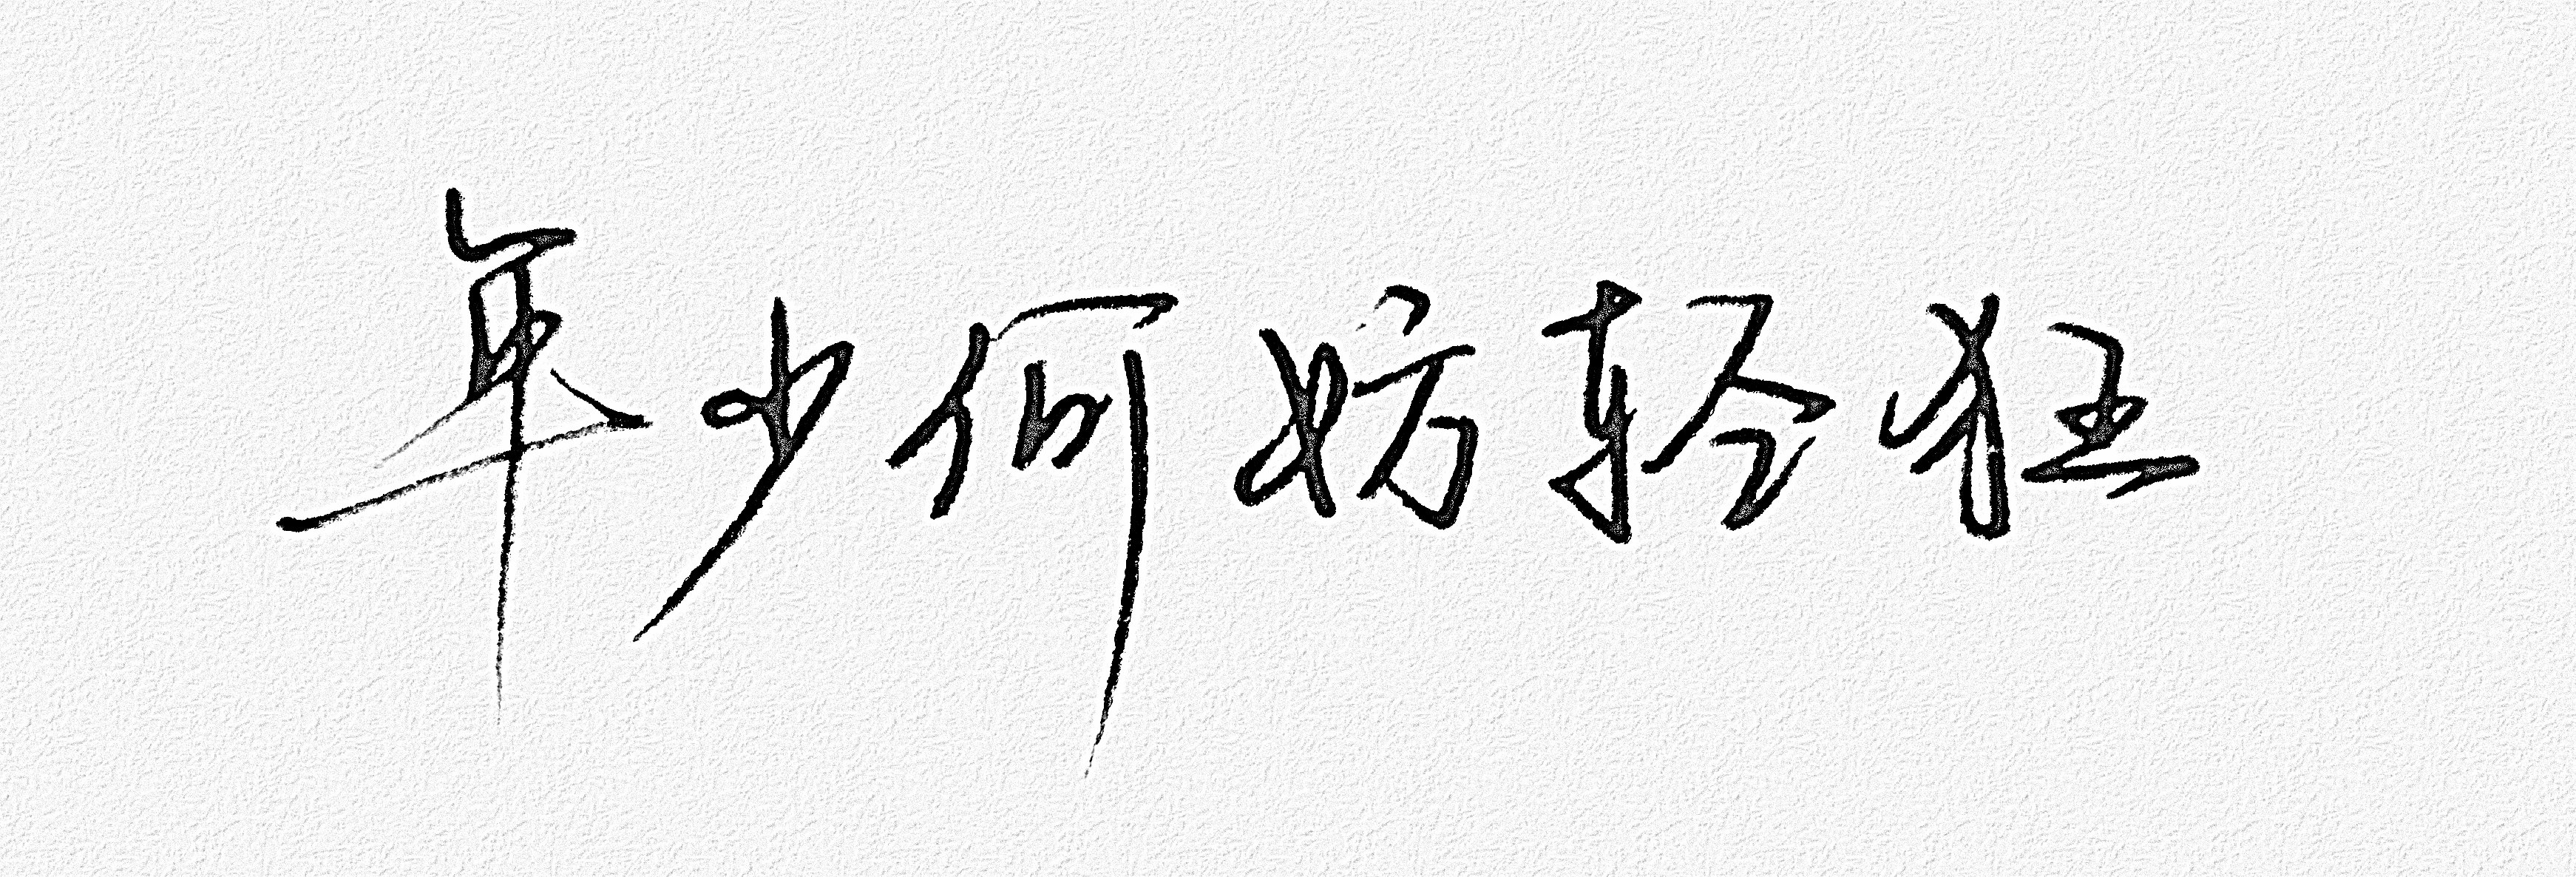 年少何妨轻狂